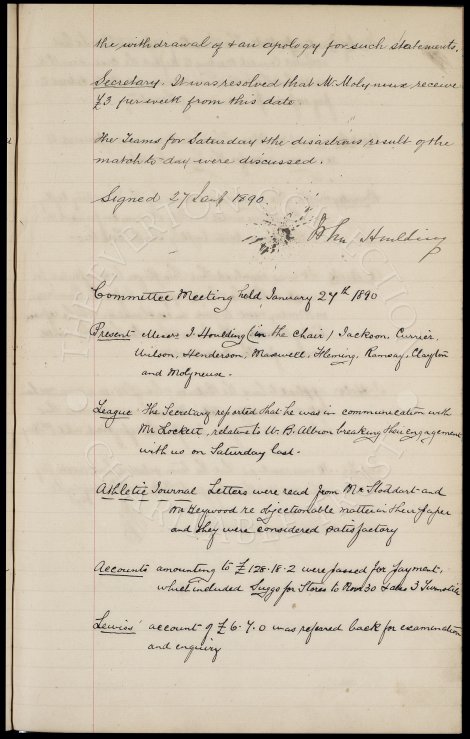 the withdrawal of & an apology for such statements.
Secretary. It was resolved that Mr Molyneux receive
£3 per week from this date.
The Teams for Saturday & the disastrous result of the
match to-day were discussed.
Signed 27 Jany 1890.
John Houlding
Committee Meeting held January 27th 1890
Present Messrs J Houlding (in the Chair) Jackson, Currier,
Wilson, Henderson, Maxwell, Fleming, Ramsay, Clayton
and Molyneux.
League The Secretary reported that he was in communication with
Mr Lockett, relative to W. B. Albion breaking their engagement
with us on Saturday last.
Athletic Journal Letters were read from Mr Stoddart and
Mr Heywood re objectionable matter in their paper
and they were considered satisfactory
Accounts amounting to £128.18.2 were passed for payment,
which included for Stores to 30 3 Turnstile
Lewiss' account of £6.7.0 was refered back for examination
and enquiry
THE EVERTON COLLECTION